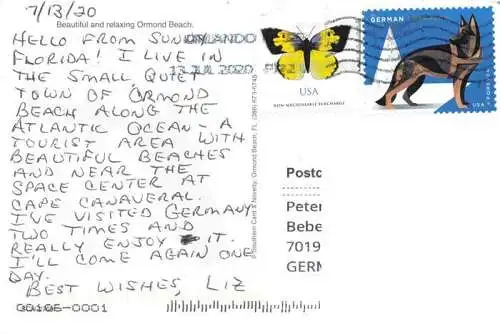 7/13/20
Beautiful and relaxing Ormond Beach.
HELLO FROM SUNNY
FLORIDA! I LIVE IN
THE SMALL QUIET
TOWN OF ORMOND
BEACH ALONG THE
ATLANTIC OCEAN - A
TOURIST AREA WITH
BEAUTIFUL BEACHES
AND NEAR THE
SPACE CENTER AT
CAPE CANAVERAL.
I'VE VISITED GERMANY
TWO TIMES AND
REALLY ENJOY IT.
I'LL COME AGAIN ONE
DAY.
BEST WISHES, LIZ
00106-0001
© Southern Card & Novelty, Ormond Beach, FL
ORLANDO
13 JUL 2020
USA
NON-MACHINEABLE SURCHARGE
GERMAN
FOREVER
USA
Postc
Peter
Bebe
7019
GERM